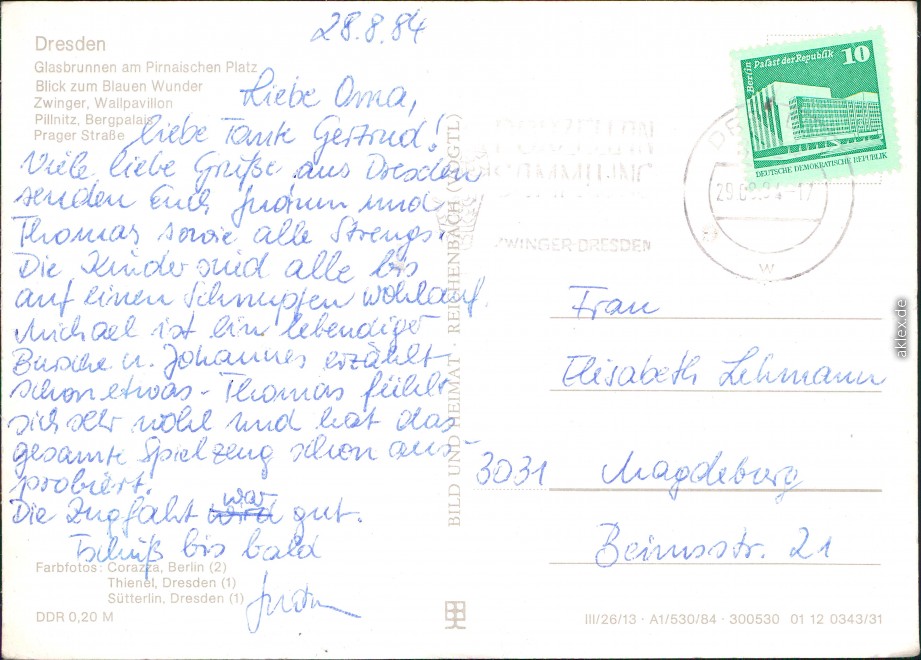 28.8.84
Dresden
Glasbrunnen am Pirnaischen Platz
Blick zum Blauen Wunder
Zwinger, Wallpavillon
Pillnitz, Bergpalais
Prager Straße
Liebe Oma,
liebe Tante Gertrud!
Viele liebe Grüße aus Dresden
senden Euch Gudrun und
Thomas sowie alle Strengs.
Die Kinder sind alle bis
auf einen Schnupfen wohlauf.
Michael ist ein lebendiger
Bursche u. Johannes erzählt
schon etwas. Thomas fühlt
sich sehr wohl und hat das
gesamte Spielzeug schon aus-
probiert.
Die Zugfahrt war gut.
Tschüß bis bald
Gudrun
Farbfotos: Corazza, Berlin (2)
Thienel, Dresden (1)
Sütterlin, Dresden (1)
DDR 0,20 M
BILD UND HEIMAT · REICHENBACH (VOGTL)
Berlin Palast der Republik 10
DEUTSCHE DEMOKRATISCHE REPUBLIK
PORZELLAN
SAMMLUNG
ZWINGER-DRESDEN
29.08.84-17
W
Frau
Elisabeth Lehmann
3031 Magdeburg
Beimsstr. 21
III/26/13 · A1/530/84 · 300530 01 12 0343/31
aklex.de